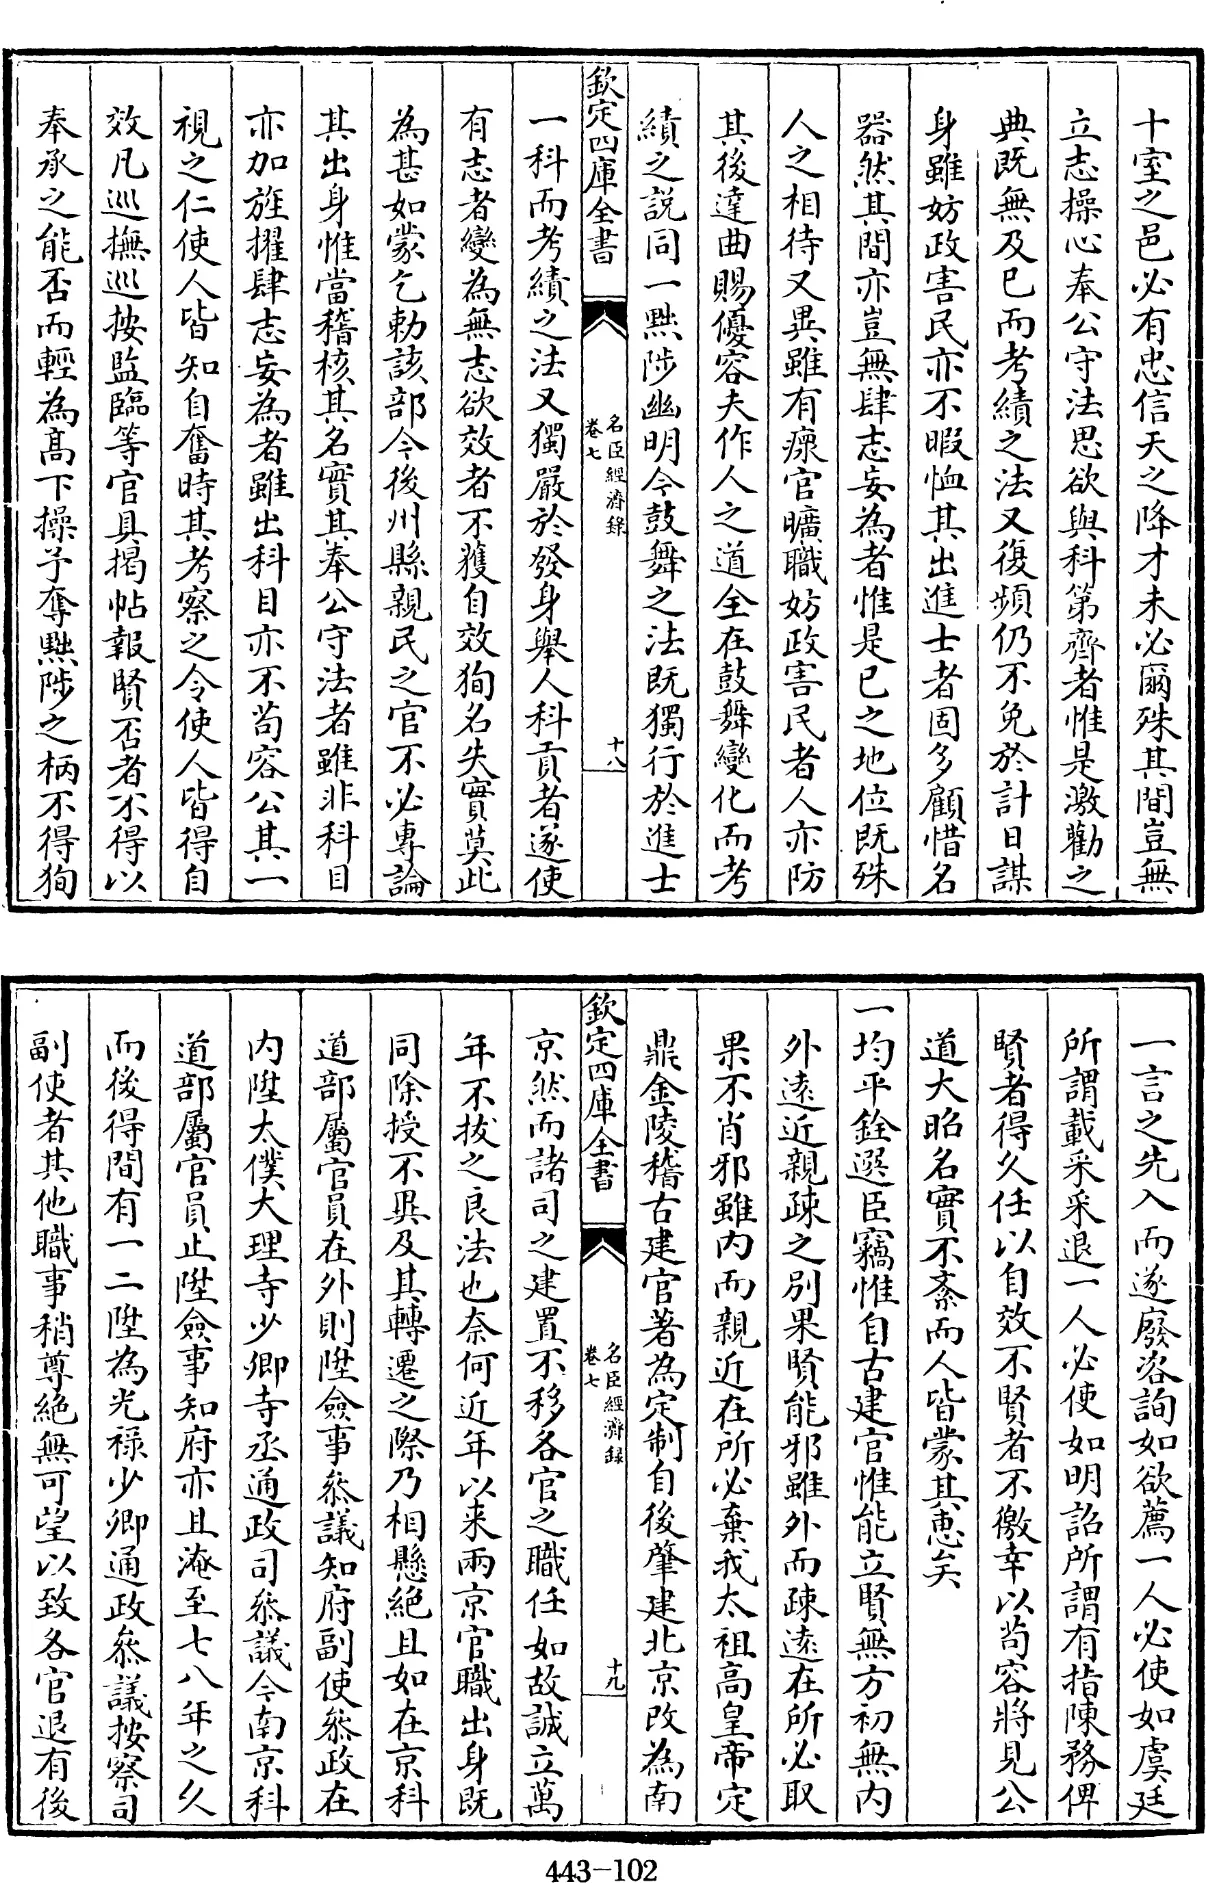 十室之邑必有忠信天之降才未必爾殊其間豈無
立志操心奉公守法思欲與科第齊者惟是激勸之
典既無及已而考績之法又復頻仍不免於計日謀
身雖妨政害民亦不暇恤其出進士者固多顧惜名
器然其間亦豈無肆志妄為者惟是已之地位既殊
人之相待又異雖有瘝官曠職妨政害民者人亦防
其後達曲賜優容夫作人之道全在鼓舞變化而考
績之説同一黜陟幽明今鼓舞之法既獨行於進士
欽定四庫全書
名臣經濟錄
卷七
十八
一科而考績之法又獨嚴於發身舉人科貢者遂使
有志者變為無志欲效者不獲自效狥名失實莫此
為甚如蒙乞勅該部今後州縣親民之官不必專論
其出身惟當稽核其名實其奉公守法者雖非科目
亦加旌擢肆志妄為者雖出科目亦不苟容公其一
視之仁使人皆知自奮時其考察之令使人皆得自
效凡巡撫巡按監臨等官具揭帖報賢否者不得以
奉承之能否而輕為高下操予奪黜陟之柄不得狥
一言之先入而遂廢咨詢如欲薦一人必使如虞廷
所謂載采采退一人必使如明詔所謂有指陳務俾
賢者得久任以自效不賢者不徼幸以苟容將見公
道大昭名實不紊而人皆蒙其惠矣
一均平銓選臣竊惟自古建官惟能立賢無方初無内
外遠近親疎之別果賢能邪雖外而疎遠在所必取
果不肖邪雖内而親近在所必棄我太祖高皇帝定
鼎金陵稽古建官著為定制自後肇建北京改為南
欽定四庫全書
名臣經濟錄
卷七
十九
京然而諸司之建置不移各官之職任如故誠立萬
年不拔之良法也奈何近年以来兩京官職出身既
同除授不異及其轉遷之際乃相懸絶且如在京科
道部屬官員在外則陞僉事叅議知府副使叅政在
内陞太僕大理寺少卿寺丞通政司叅議今南京科
道部屬官員止陞僉事知府亦且淹至七八年之久
而後得間有一二陞為光祿少卿通政叅議按察司
副使者其他職事稍尊絶無可望以致各官退有後
443-102